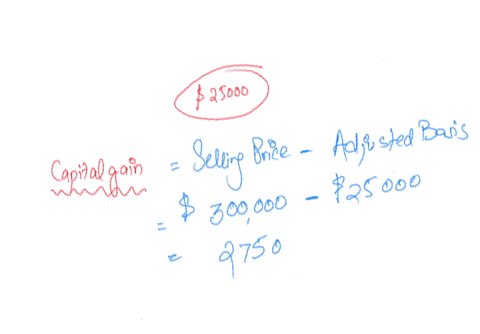 $25000
Capital gain = Selling Price - Adjusted Basis
= $ 300,000 - $25000
= 2750